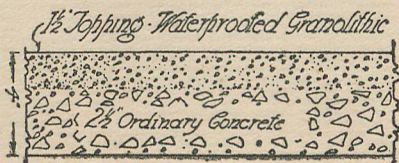 1½" Topping-Waterproofed Granolithic
4"
2½" Ordinary Concrete